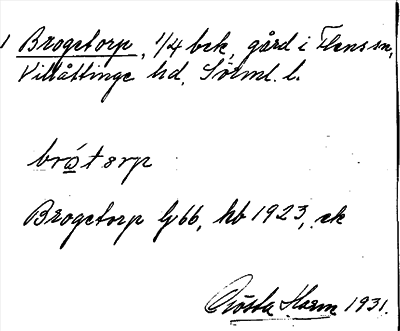 1 Brogetorp, 1/4 bek, gård i Flens sn,
Villåttinge hd, Sörml. l.
bråtorp
Brogetorp Gj 66, hb 1923, ek
Gösta Harm 1931.